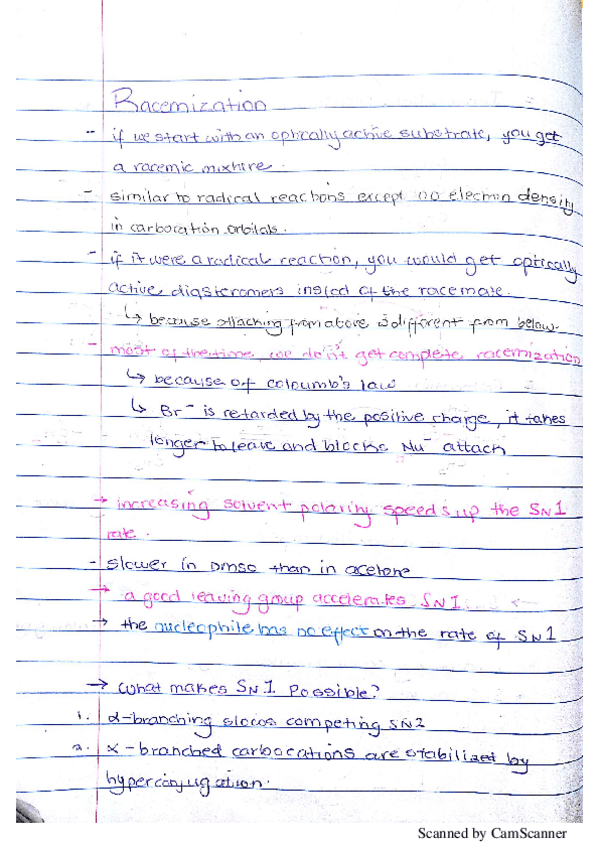 Racemization
- if we start with an optically active substrate, you get
a racemic mixture.
- similar to radical reactions except no electron density
in carbocation orbitals.
- if it were a radical reaction, you would get optically
active diasteromers insted of the racemate.
↳ because attaching from above is different from below.
- most of the time, we don't get complete racemization
↳ because of coloumb's law
↳ Br⁻ is retarded by the positive charge, it takes
longer to leave and blocks Nu⁻ attack
→ increasing solvent polarity speeds up the SN1
rate.
- slower in DMSO than in acetone
→ a good leaving group accelerates SN1.
→ the nucleophile has no effect on the rate of SN1
→ What makes SN1 Possible?
1. α-branching slows competing SN2
2. α-branched carbocations are stabilized by
hyperconjugation.
Scanned by CamScanner